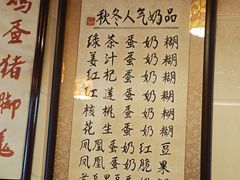 秋冬人气奶品
绿茶蛋奶糊
姜汁蛋奶糊
红杞蛋奶糊
红莲蛋奶糊
核桃蛋奶糊
花生蛋奶糊
凤凰蛋奶红豆
凤凰蛋奶脆果
鸡蛋猪脚姜